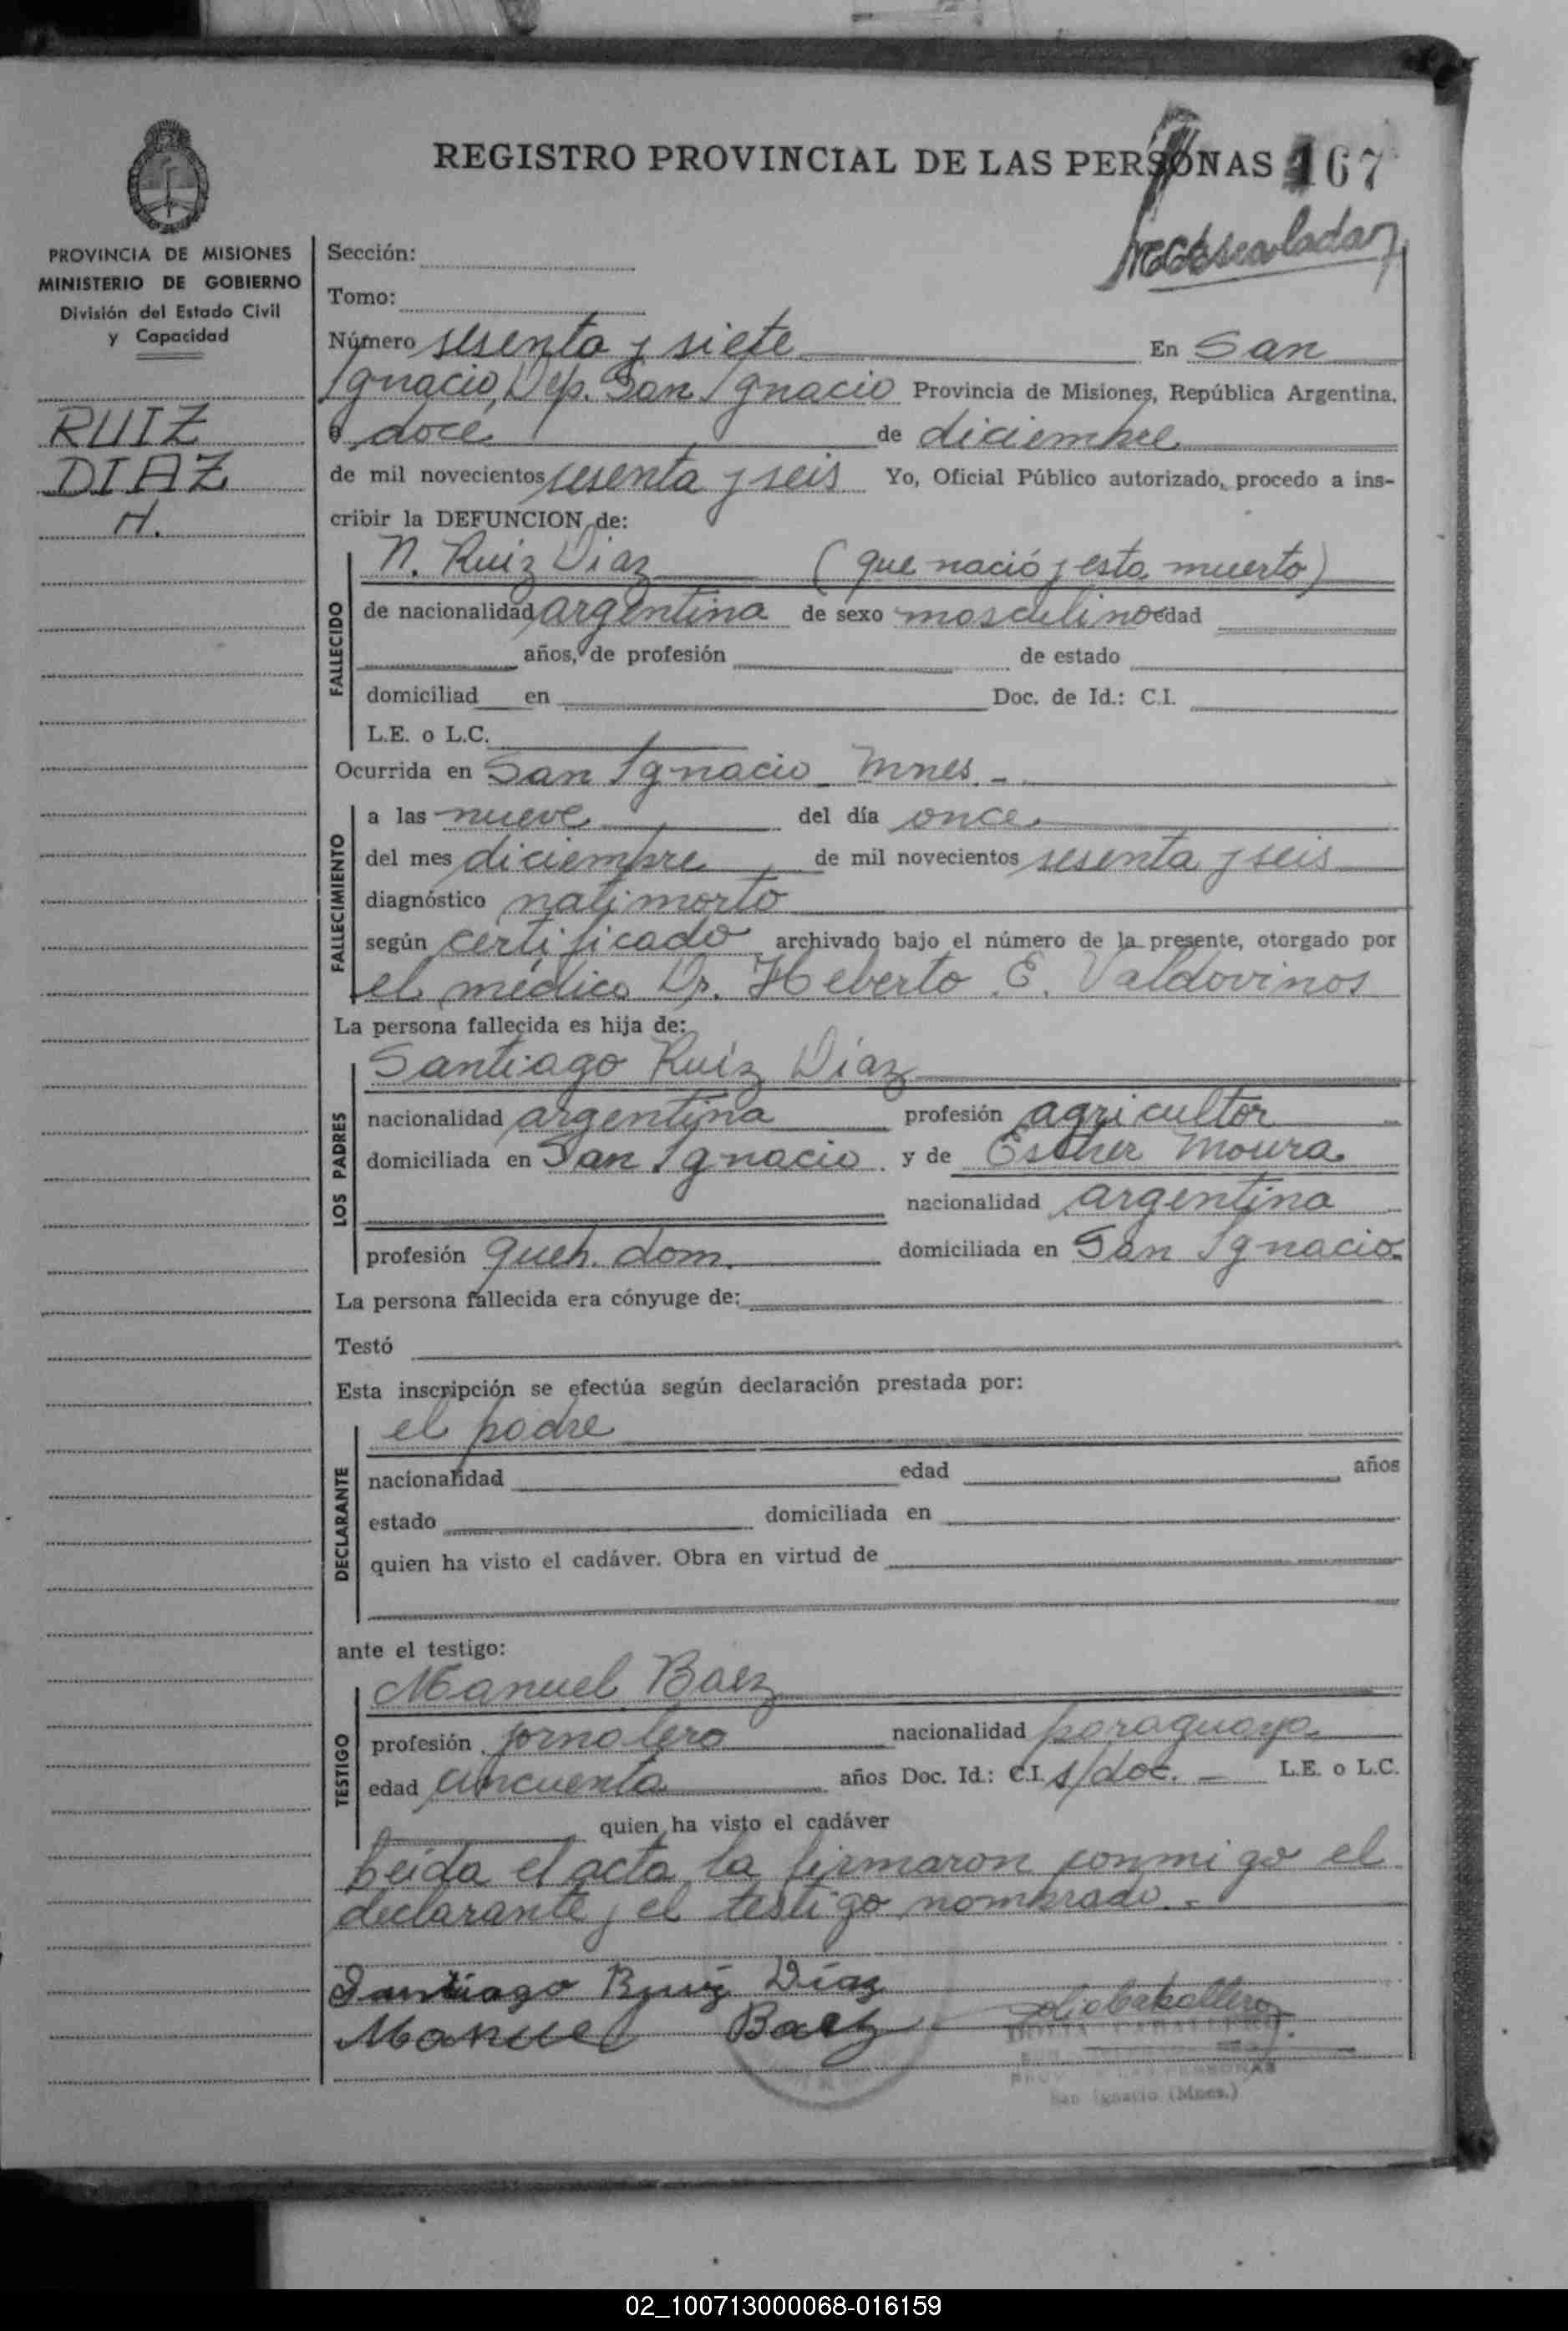 REGISTRO PROVINCIAL DE LAS PERSONAS 167
PROVINCIA DE MISIONES
MINISTERIO DE GOBIERNO
División del Estado Civil
y Capacidad
RUIZ
DIAZ
N.
Sección:
Tomo:
Número sesenta y siete En San
Ignacio, Dep. San Ignacio Provincia de Misiones, República Argentina,
a doce de diciembre
de mil novecientos sesenta y seis Yo, Oficial Público autorizado, procedo a ins-
cribir la DEFUNCION de:
N. Ruiz Diaz (que nació y esta muerto)
FALLECIDO
de nacionalidad argentina de sexo masculino edad
años, de profesión de estado
domiciliad en Doc. de Id.: C.I.
L.E. o L.C.
Ocurrida en San Ignacio Mnes.-
FALLECIMIENTO
a las nueve del día once
del mes diciembre de mil novecientos sesenta y seis
diagnóstico natimorto
según certificado archivado bajo el número de la presente, otorgado por
el médico Dr. Heberto E. Valdovinos
La persona fallecida es hija de:
LOS PADRES
Santiago Ruiz Díaz
nacionalidad argentina profesión agricultor
domiciliada en San Ignacio y de Esther Moura
nacionalidad argentina
profesión queh. dom. domiciliada en San Ignacio
La persona fallecida era cónyuge de:
Testó
Esta inscripción se efectúa según declaración prestada por:
DECLARANTE
el padre
nacionalidad edad años
estado domiciliada en
quien ha visto el cadáver. Obra en virtud de
ante el testigo:
TESTIGO
Manuel Baez
profesión jornalero nacionalidad paraguaya
edad cincuenta años Doc. Id.: C.I. s/doc. - L.E. o L.C.
quien ha visto el cadáver
Leída el acta, la firmaron conmigo el
declarante y el testigo nombrado.-
Santiago Ruiz Díaz
Manuel Baez
San Ignacio (Mnes.)
02_100713000068-016159